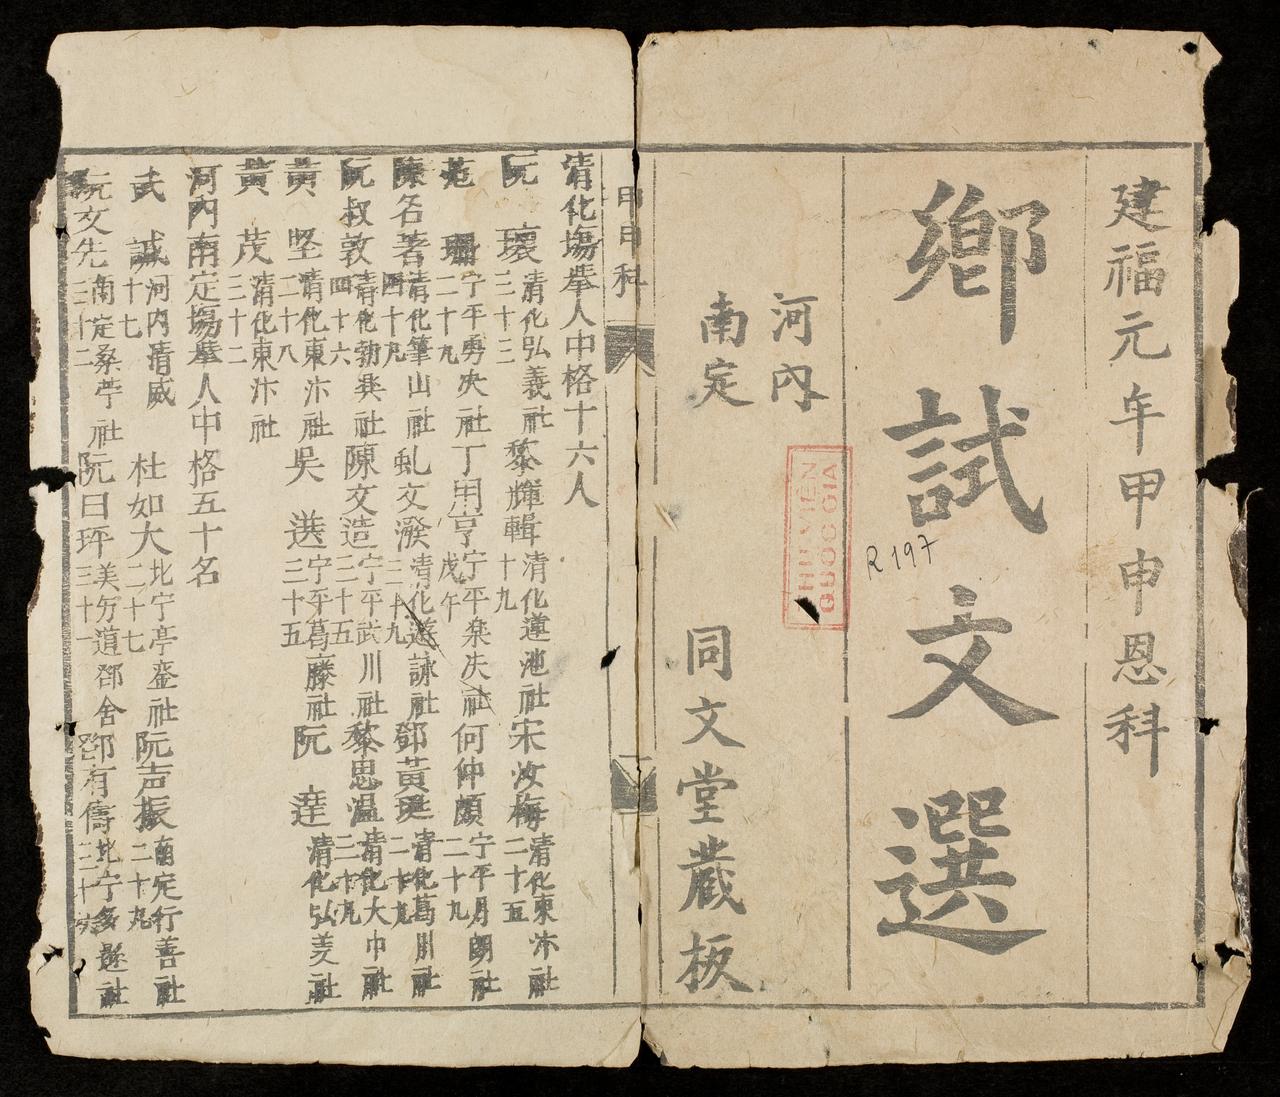 建福元年甲申恩科
鄉試文選
河內
南定
同文堂蔵板
THƯ VIỆN
QUỐC GIA
R197
甲申科
清化場舉人中格十六人
阮環 清化弘義社 二十三 黎輝輯 清化遵池社 十九 宋汝梅 清化東汴社 二十五
范珊 宁平勇决社 二十九 丁用亨 宁平桒决社 戊午 何仲 宁平月朗社 二十九
陳名著 清化筆山社 四十九 文潑 清化遊詠社 二十九 鄧黃 清化葛川社 二十九
阮叔敦 清化勃興社 四十六 陳文造 宁平武川社 二十五 黎思温 清化大中社 二十九
黃坚 清化東汴社 二十八 吳選 宁平葛藤社 三十五 阮達 清化弘美社
黃茂 清化東汴社 三十二
河內南定場舉人中格五十名
武誠 河內清威 十七 杜如大 北宁亭鑾社 二十七 阮声振 南定行善社 二十九
阮文先 南定桑苧社 三十二 阮曰玶 美芳道鄧舍 三十一 鄧有儔 北宁多 社 三十六